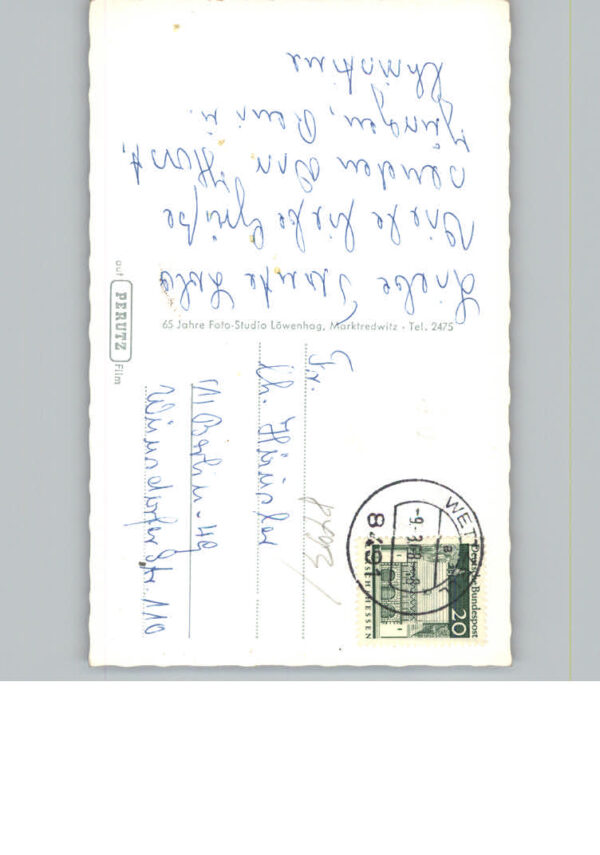 Liebe Tante Lola
Viele liebe Grüße
senden Dir Horst,
Jürgen, Reni u.
Christine
65 Jahre Foto-Studio Löwenhag, Marktredwitz · Tel. 2475
auf PERUTZ Film
Fr.
Ch. Hänsler
1/1 Berlin-49
Wünsdorfer Str. 110
Deutsche Bundespost
20
HESSEN
WET
8
-9.